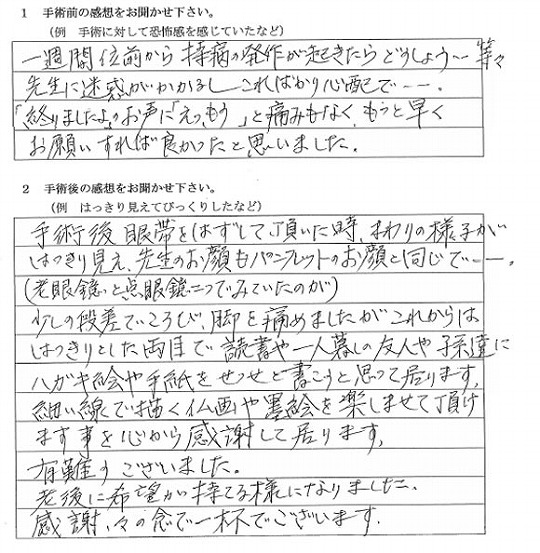 1 手術前の感想をお聞かせ下さい。
（例 手術に対して恐怖感を感じていたなど）
一週間位前から持病の発作が起きたらどうしよう〜等々
先生に迷惑がかかるしこればかり心配で――。
「終りましたよ」のお声に「えっもう」と痛みもなく、もっと早く
お願いすれば良かったと思いました。
2 手術後の感想をお聞かせ下さい。
（例 はっきり見えてびっくりしたなど）
手術後眼帯をはずして頂いた時、まわりの様子が
はっきり見え、先生のお顔もパンフレットのお顔と同じで――。
(老眼鏡と点眼鏡二つでみていたのが)
少しの段差でころび、脚を痛めましたがこれからは
はっきりとした両目で読書や一人暮しの友人や子孫達に
ハガキ絵や手紙をせっせと書こうと思って居ります。
細い線で描く仏画や墨絵を楽しませて頂け
ます事を心から感謝して居ります。
有難うございました。
老後に希望が持てる様になりました。
感謝々々の念で一杯でございます。